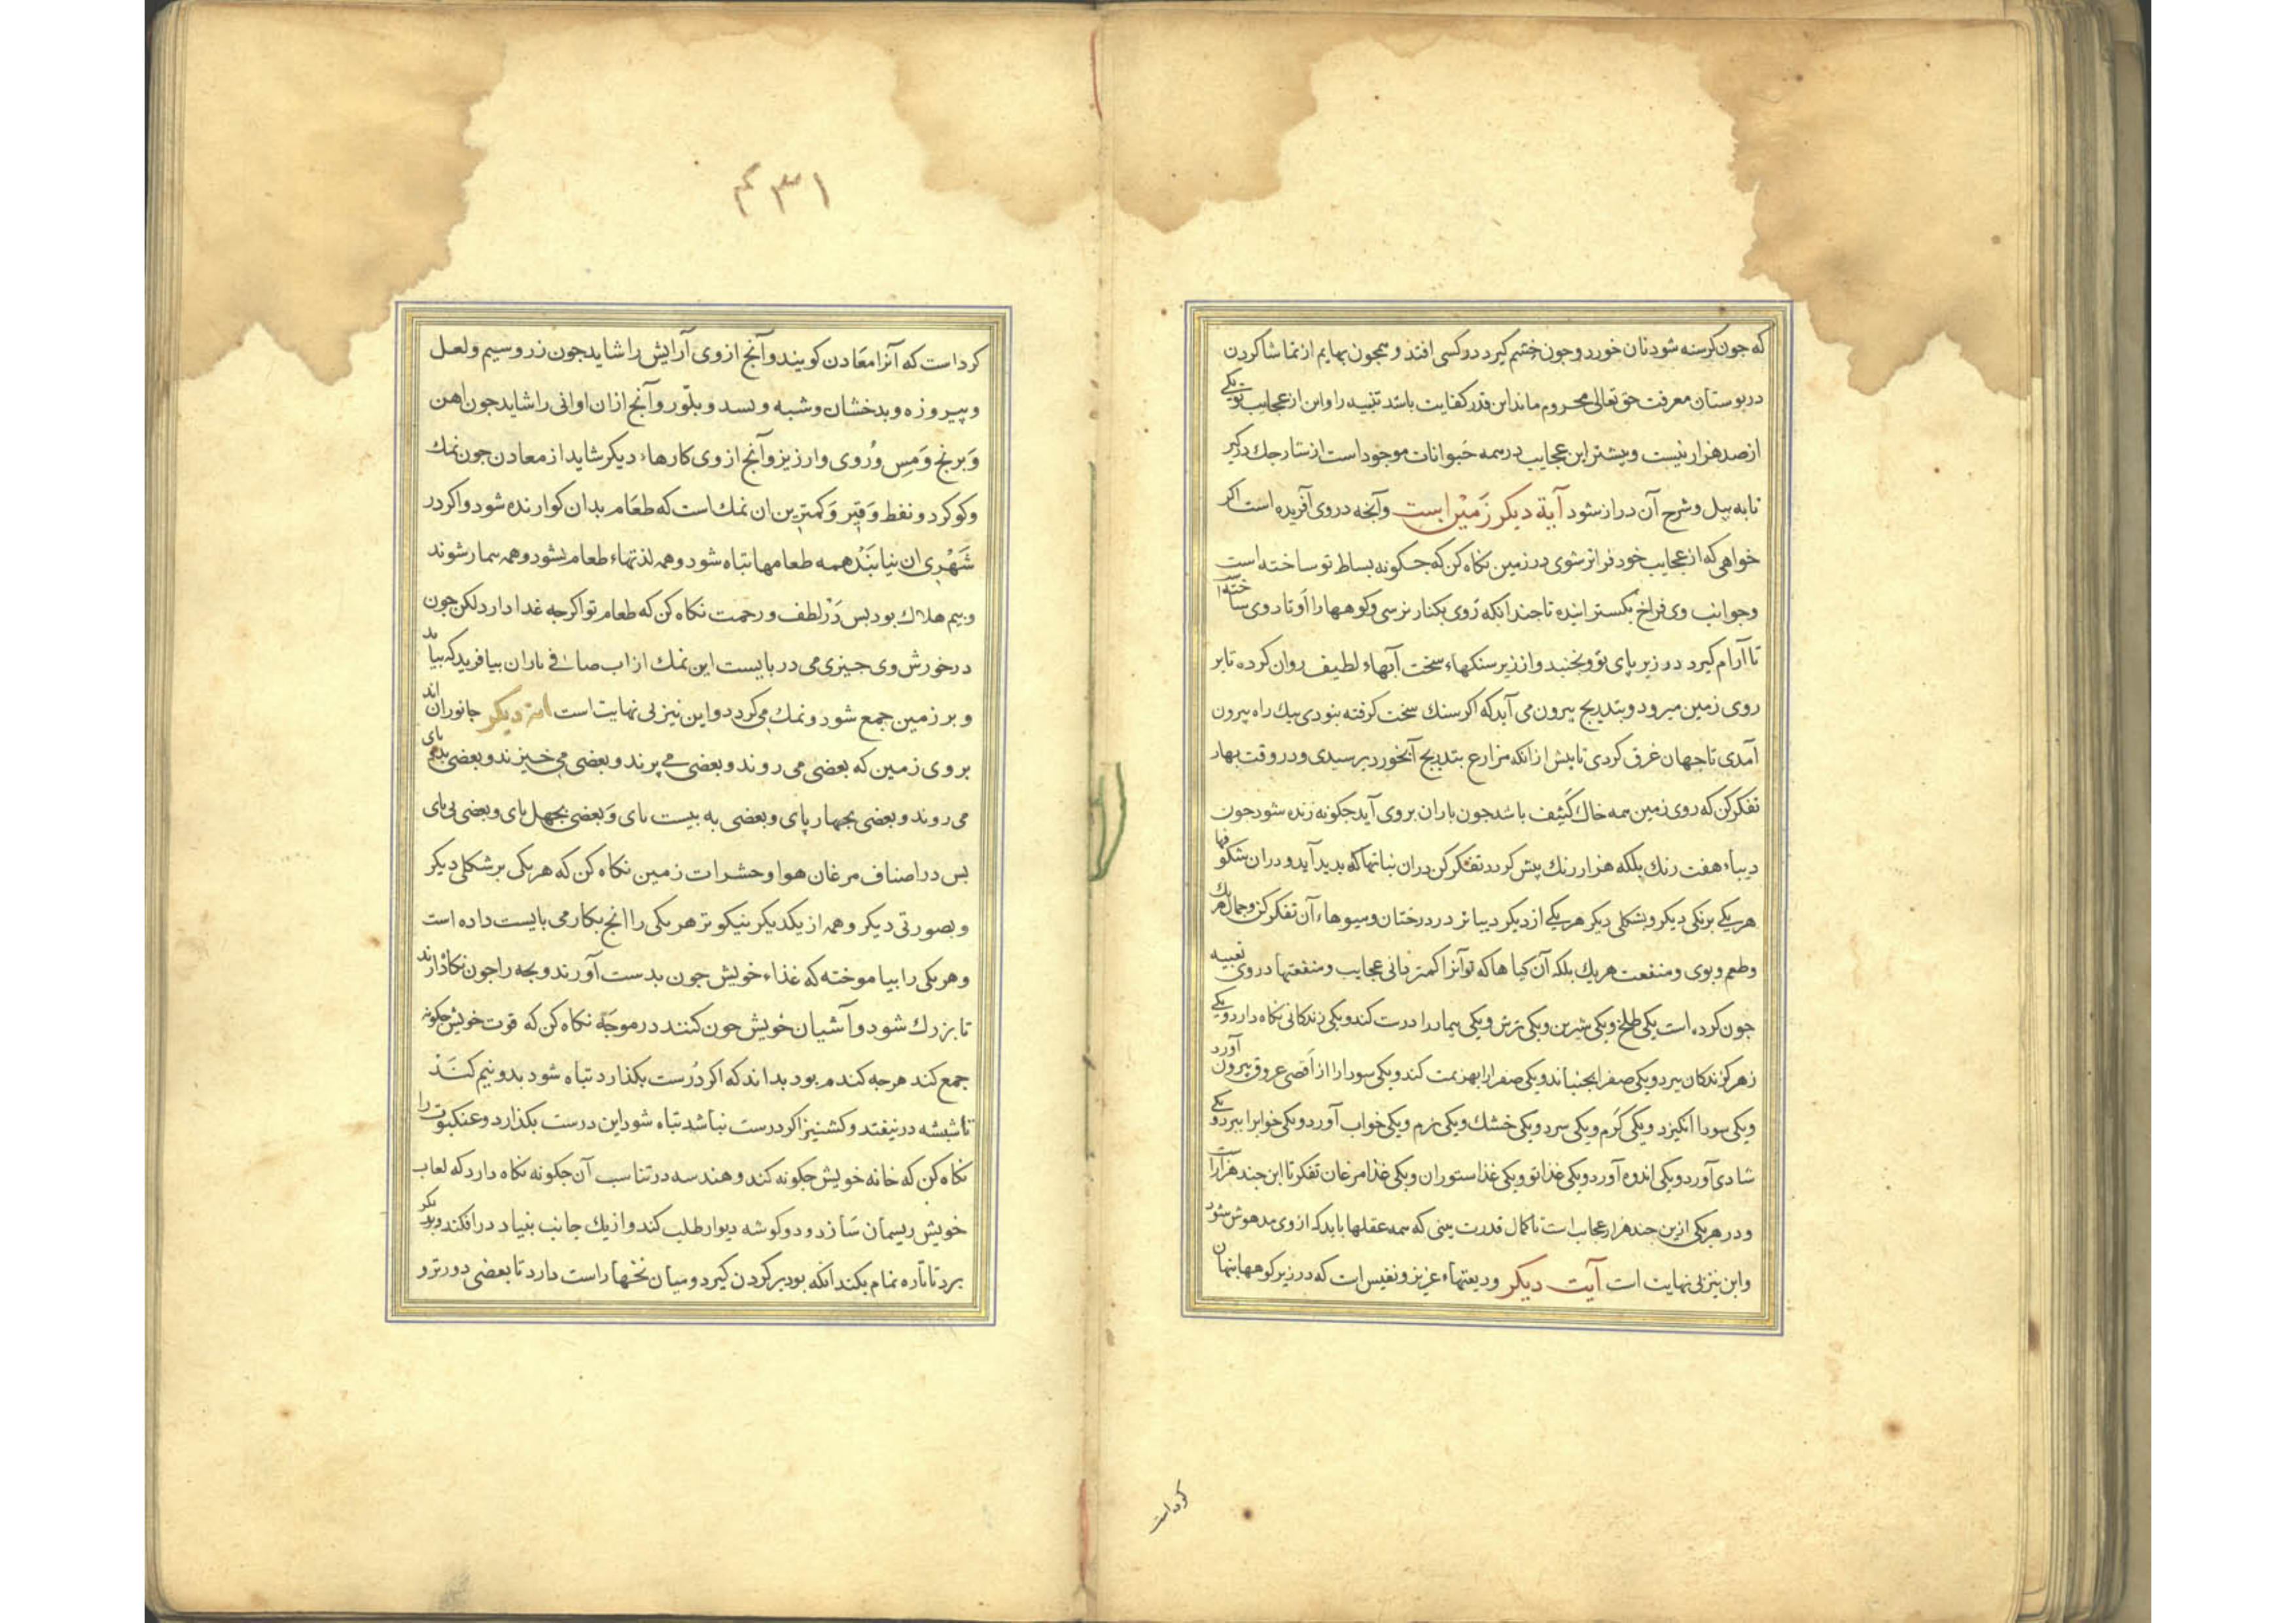 که جون کرسنه شود نان خورد و جون خشم کیرد در کسی افتد و همجون بهایم از تماشا کردن
در بوستان معرفت حق تعالی محروم ماند این قدر کفایت باشد تنبیه را و این از عجایب تو یکی
از صد هزار نیست و بیشتر این عجایب در همه حیوانات موجود است از سارجك درکیر
تا به بیل و شرح آن دراز شود آیة دیکر زمین است و آنجه در وی آفریده است اکر
خواهی که از عجایب خود فراتر شوی در زمین نکاه کن که جکونه بساط تو ساخته است
و جوانب وی فراخ بکسترانیده تا جندانکه روی بکنار نرسی و کوهها را اوتاد وی ساخته
تا آرام کیرد در زیر پای تو و نجنبد و از زیر سنکهاء سخت آبهاء لطیف روان کرده تا بر
روی زمین میرود و بتدریج بیرون می آید که اکر سنك سخت کرفته بنودی بیك راه بیرون
آمدی تا جهان غرق کردی تا بیش از انکه مزارع بتدریج آبخورد برسیدی و در وقت بهار
تفکر کن که روی زمین همه خاك کثیف باشد جون باران بر وی آید جکونه زنده شود جون
دیباء هفت رنك بلکه هزار رنك پیش کردد تفکر کن در ان نباتها که بدید آید و در ان شکوفها
هر یکی برنکی دیکر و بشکلی دیکر هر یکی از دیکر دیباتر در درختان و میوهاء آن تفکر کن و جمال هر یك
و طعم و بوی و منفعت هر یك بلکه آن کیاها که تو آنرا کمتر دانی عجایب و منفعتها در وی تعبیه
جون کرده است یکی طلخ و یکی شیرین و یکی ترش و یکی بیمار را درست کند و یکی زندکانی نکاه دارد و یکی
زهر کزندکان ببرد و یکی صفرا بجنباند و یکی صفرا را بهزیمت کند و یکی سودا را از اقصی عروق بیرون آورد
و یکی سودا انکیزد و یکی کرم و یکی سرد و یکی خشك و یکی نرم و یکی خواب آورد و یکی خواب را ببرد و یکی
شادی آورد و یکی اندوه آورد و یکی غذا تو و یکی غذا ستوران و یکی غذا مرغان تفکر تا این جند هزار
و در هر یکی ازین جند هزار عجاب است تا کمال قدرت بینی که همه عقلها باید که از وی مدهوش شود
و این نیز بی نهایت است آیت دیکر ودیعتهاء عزیز و نفیس است که در زیر کوهها پنهان
کرده است
۱۳۴
کرد است که آنرا معادن کویند و آنج از وی آرایش را شاید جون زر و سیم و لعل
و پیروزه و بدخشان و شبه و بسد و بلور و آنج از ان اوانی را شاید جون اهن
و برنج و مس و روی و ارزیز و آنج از وی کارهاء دیکر شاید از معادن جون نمك
و کوکرد و نفط و قیر و کمترین ان نمك است که طعام بدان کوارنده شود و اکر در
شهری ان نیابند همه طعامها تباه شود و همه لذتهاء طعام بشود و همه بیمار شوند
و بیم هلاك بود بس در لطف و رحمت نکاه کن که طعام تو اکر جه غدا دارد لکن جون
در خورش وی جیزی می دربایست این نمك از اب صافی باران بیافرید که بیاید
و بر زمین جمع شود و نمك می کردد و این نیز بی نهایت است ایت دیکر جانوران اند
بر وی زمین که بعضی می روند و بعضی می پرند و بعضی می خیزند و بعضی بدو پای
می روند و بعضی بجهار پای و بعضی به بیست پای و بعضی بجهل پای و بعضی بی پای
بس در اصناف مرغان هوا و حشرات زمین نکاه کن که هر یکی بر شکلی دیکر
و بصورتی دیکر و همه از یکدیکر نیکوتر هر یکی را انج بکار می بایست داده است
و هر یکی را بیاموخته که غذاء خویش جون بدست آورند و بجه را جون نکاه دارند
تا بزرك شود و آشیان خویش جون کنند در موجه نکاه کن که قوت خویش جکونه
جمع کند هر جه کندم بود بداند که اکر درست بکذارد تباه شود بدو نیم کند
تا شبشه در نیفتد و کشنیز اکر درست نباشد تباه شود این درست بکذارد و عنکبوت را
نکاه کن که خانه خویش جکونه کند و هندسه در تناسب آن جکونه نکاه دارد که لعاب
خویش ریسمان سازد و دو کوشه دیوار طلب کند و از یك جانب بنیاد در افکند و بدیکر
برد تا تاره تمام بکند انکه بود بر کردن کیرد و میان نخها راست دارد تا بعضی دورتر و